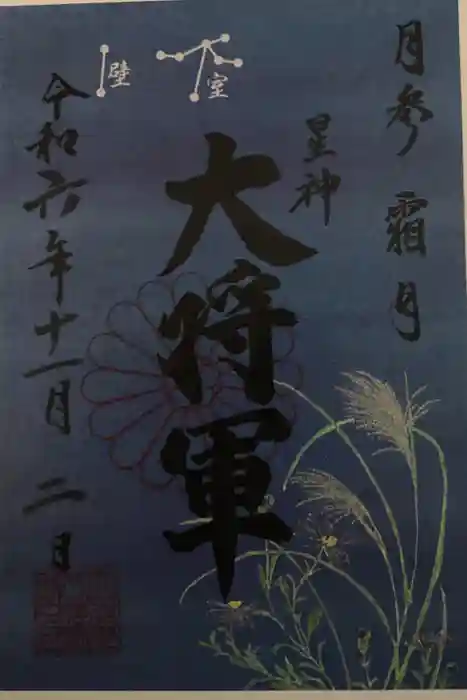 月参 霜月
星神
大将軍
室
壁
令和六年十一月二日